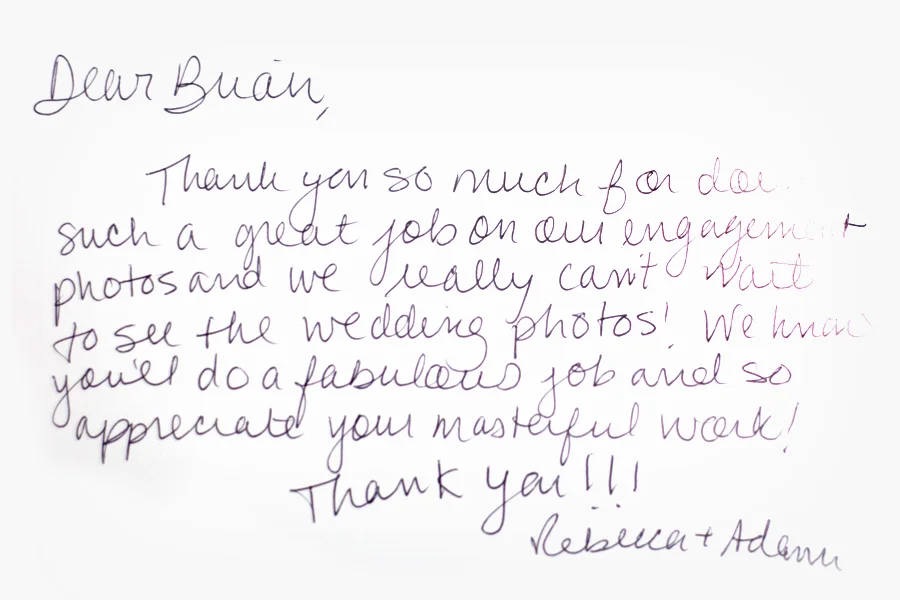 Dear Brian,
Thank you so much for doi
such a great job on our engagement
photos and we really can't wait
to see the wedding photos! We know
you'll do a fabulous job and so
appreciate your masterful work!
Thank you!!!
Rebecca + Adam